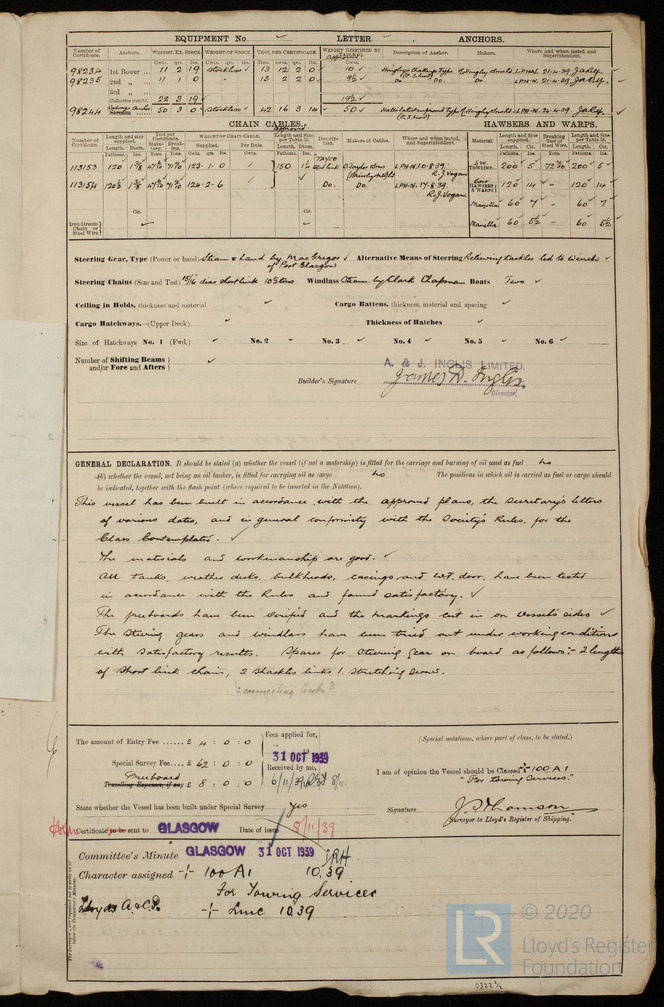 EQUIPMENT No. LETTER ANCHORS.
Number of Certificate. Anchors. WEIGHT, EX. STOCK. WEIGHT OF STOCK. TEST, PER CERTIFICATE. WEIGHT REQUIRED BY TABLE Description of Anchor. Makers. Where and when tested and Superintendent.
98234 1st Bower 11 2 19 Stockless 13 12 2 0 10
98235 2nd „ 11 1 0 13 2 2 0 9½ Do Do. Do.
3rd „
Collective weight. 22 3 19 19½
98244 50 3 0 Stockless 42 16 3 14 50
CHAIN CABLES. HAWSERS AND WARPS.
Number of Certificate. Length and size supplied. Test per Certificate. WEIGHT OF CHAIN CABLE. Length and Size per Table Description. Makers of Cables. Where and when tested, and Superintendent. Material Length and Size supplied. Breaking Test of Steel Wire. Length and Size per Table
113153 120 123 . 1 . 0 150 LPH-N. 10.8.39. R.J. Vogan S.W. TOWLINE 200 5 200 5
113154 124 . 2 . 6 Do. Do. LPH-N. 17.8.39. R.J. Vogan HAWSERS & WARPS 120 14 - 120 14
Manilla 60 7 - 60 7
Iron Stream Chain or Steel Wire Manilla 60 5½ - 60 5½
Steering Gear, Type (Power or hand) Steam & hand by MacGregor of Port Glasgow Alternative Means of Steering Relieving tackles led to winch
Steering Chains (Size and Test) 15/16 dia short link 10½ tons Windlass Steam by Clark Chapman Boats Two
Ceiling in Holds, thickness and material Cargo Battens, thickness, material and spacing
Cargo Hatchways.—(Upper Deck) Thickness of Hatches
Size of Hatchways No. 1 (Fwd.) No. 2 No. 3 No. 4 No. 5 No. 6
Number of Shifting Beams and/or Fore and Afters
A. & J. INGLIS LIMITED.
Builder's Signature James D. Inglis
Director.
GENERAL DECLARATION. It should be stated (a) whether the vessel (if not a motorship) is fitted for the carriage and burning of oil used as fuel no
(b) whether the vessel, not being an oil tanker, is fitted for carrying oil as cargo no The positions in which oil is carried as fuel or cargo should
be indicated, together with the flash point (where required to be inserted in the Notation).
This vessel has been built in accordance with the approved plans, the Secretary's letters
of various dates, and in general conformity with the Society's Rules, for the
Class Contemplated.
The materials and workmanship are good.
All tanks, weather decks, bulkheads, casings and W.T. door, have been tested
in accordance with the Rules and found satisfactory.
The freeboards have been verified and the markings cut in on vessel's sides
The Steering gears and windlass have been tried out under working conditions
with satisfactory results. Spares for Steering Gear on board as follows:- 2 lengths
of short link chain, 2 shackles links 1 stretching screw.
The amount of Entry Fee ...... £ 4 : 0 : 0 Fees applied for, (Special notations, where part of class, to be stated.)
Special Survey Fee £ 62 : 0 : 0 31 OCT 1939
Received by me,
Freeboard
Travelling Expenses, if any £ 8 : 0 : 0 6/11/39 8/11 I am of opinion the Vessel should be Classed + 100 A1
"For towing Services."
State whether the Vessel has been built under Special Survey Yes Signature. J. S. Thomson
Surveyor to Lloyd's Register of Shipping.
Certificate to be sent to GLASGOW Date of issue 8/11/39
Committee's Minute GLASGOW 31 OCT 1939
Character assigned + 100 A1 10.39
For Towing Services
Lloyds A. & C.P. + LMC 10.39
LR © 2020
Lloyd's Register
Foundation